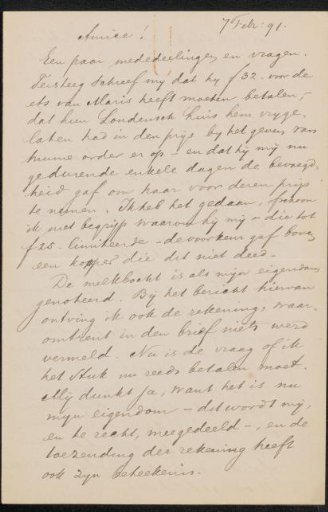 7 Febr. 91.
Amice!
Een paar mededeelingen en vragen.
Tersteeg schreef my dat hy f 32. voor de
ets van Maris heeft moeten betalen,
dat hun Londensch huis hem vrye
laten had in den prys by het geven van
hunne order er op – en dat hy my nu
gedurende enkele dagen de bevoegd-
heid gaf om haar voor deren prys
te nemen. Ik heb het gedaan, schoon
ik niet begryp waarom hy my – die tot
f 25. limiteerde – de voorkeur gaf boven
een kooper die dit niet deed.
De melkbocht is als myn eigendom
genoteerd. By het bericht hiervan
ontving ik ook de rekening, waar-
omtrent in den brief niets werd
vermeld. Nu is de vraag of ik
het stuk nu reeds betalen moet.
My dunkt ja, want het is nu
myn eigendom – dit wordt my,
en te recht, meegedeeld –, en de
toezending der rekening heeft
ook zyn beteekenis.